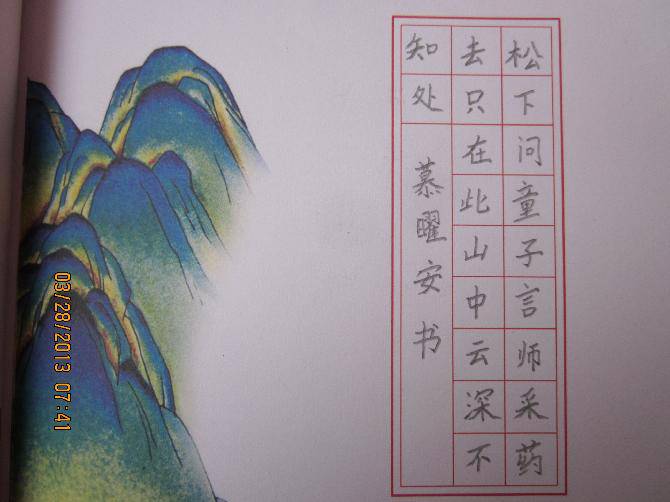 松下问童子言师采药
去只在此山中云深不
知处
慕曜安书
03/28/2013 07:41